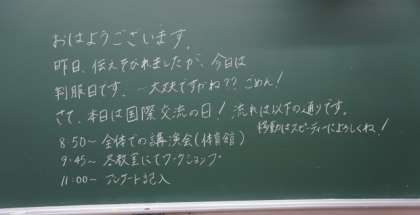 おはようございます。
昨日、伝えそびれましたが、今日は
制服日です。大丈夫ですかね?? ごめん!
さて、本日は国際交流の日! 流れは以下の通りです。
移動はスピーディーによろしくね!
8:50~ 全体での講演会(体育館)
9:45~ 各教室にてワークショップ
11:00~ アンケート記入